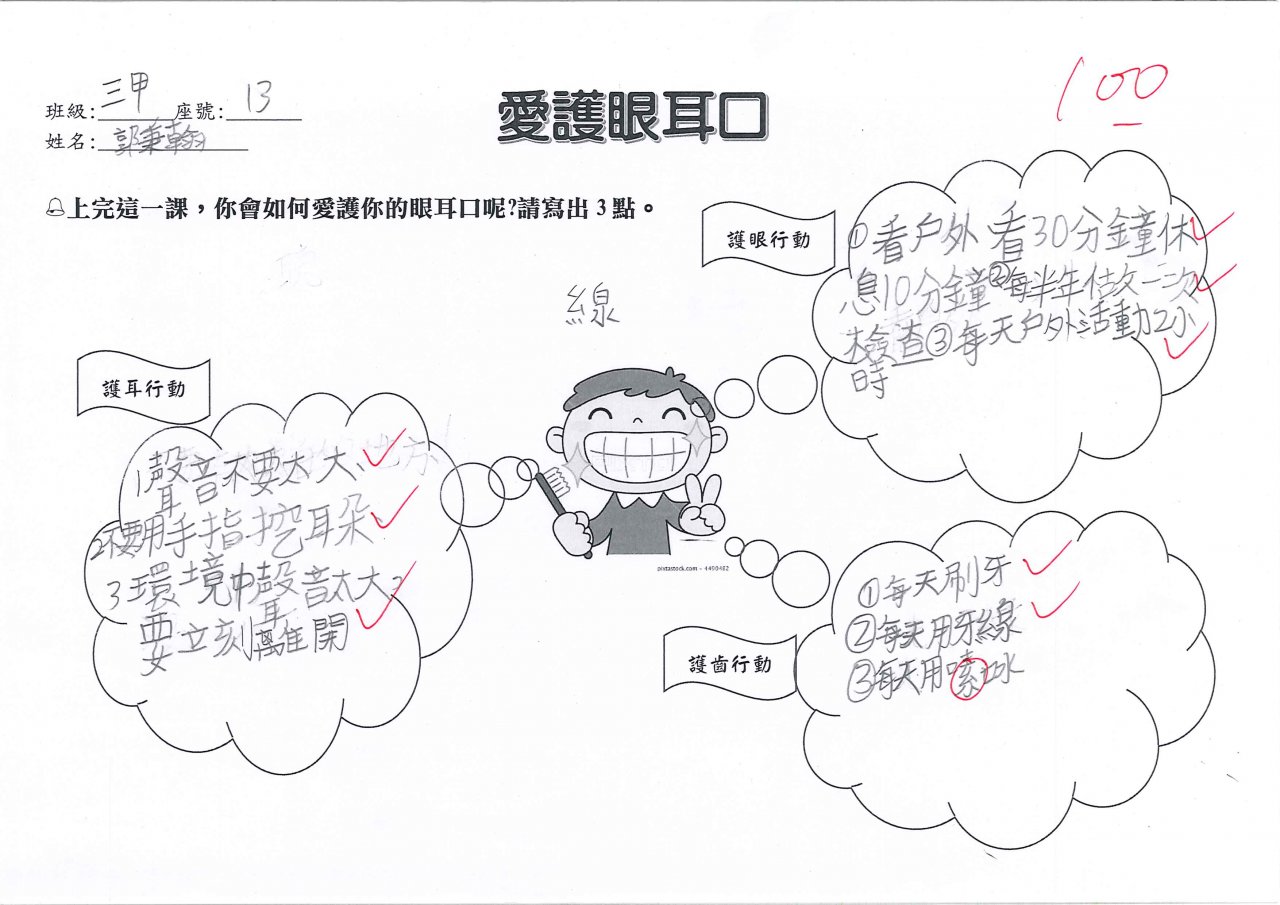 班級:三甲 座號:13
姓名:郭秉翰
愛護眼耳口
100
上完這一課，你會如何愛護你的眼耳口呢?請寫出 3 點。
護眼行動
①看戶外看30分鐘休
息10分鐘②每半年做一次
檢查③每天戶外活動2小
時
線
護耳行動
1聲音不要太大、
2不要用手指挖耳朵
3環境中聲音太大
要立刻離開
pixtastock.com - 4490482
護齒行動
①每天刷牙
②每天用牙線
③每天用嗽口水